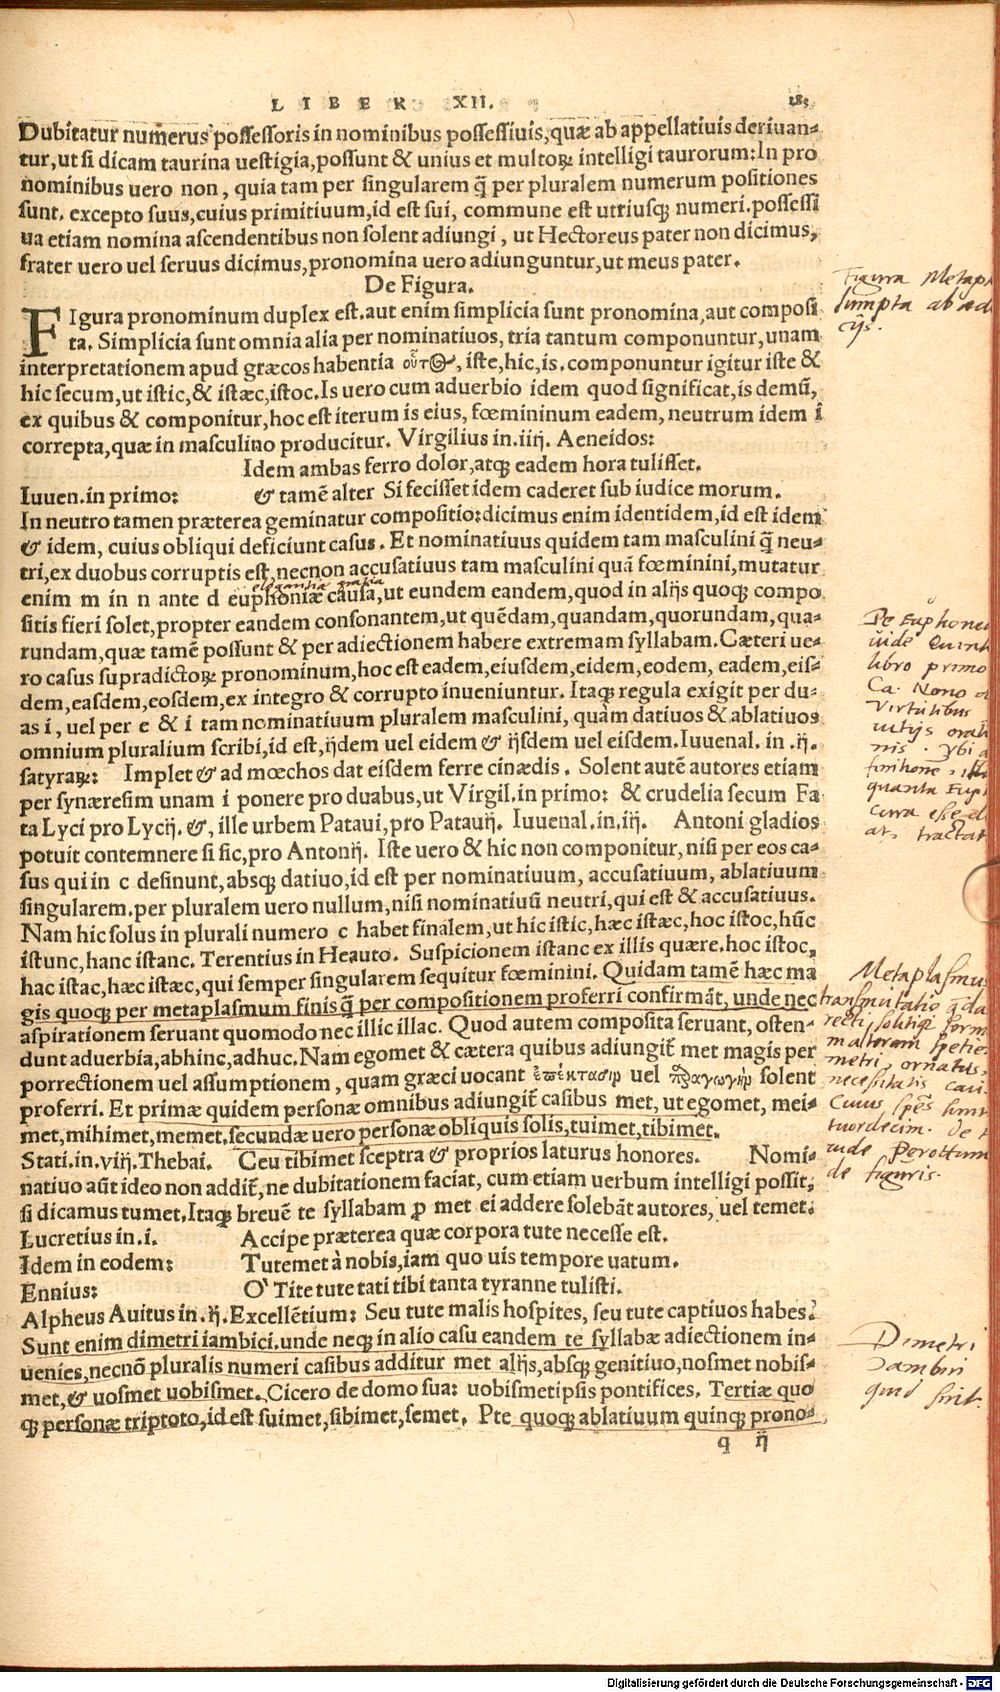 LIBER XII. 183
Dubitatur numerus possessoris in nominibus possessiuis, quæ ab appellatiuis deriuan-
tur, ut si dicam taurina uestigia, possunt & unius et multoꝝ intelligi taurorum: In pro
nominibus uero non, quia tam per singularem q̃ per pluralem numerum positiones
sunt. excepto suus, cuius primitiuum, id est sui, commune est utriusq; numeri. possessi
ua etiam nomina ascendentibus non solent adiungi, ut Hectoreus pater non dicimus,
frater uero uel seruus dicimus, pronomina uero adiunguntur, ut meus pater.
De Figura.
FIgura pronominum duplex est. aut enim simplicia sunt pronomina, aut composi
ta. Simplicia sunt omnia alia per nominatiuos, tria tantum componuntur, unam
interpretationem apud græcos habentia οὗτος, iste, hic, is. componuntur igitur iste &
hic secum, ut istic, & istæc, istoc. Is uero cum aduerbio idem quod significat, is demũ,
ex quibus & componitur, hoc est iterum is eius, fœmininum eadem, neutrum idem i
correpta, quæ in masculino producitur. Virgilius in. iiij. Aeneidos:
Idem ambas ferro dolor, atq; eadem hora tulisset.
Iuuen. in primo: & tamẽ alter Si fecisset idem caderet sub iudice morum.
In neutro tamen præterea geminatur compositio: dicimus enim identidem, id est idem
& idem, cuius obliqui deficiunt casus. Et nominatiuus quidem tam masculini q̃ neu-
tri, ex duobus corruptis est, necnon accusatiuus tam masculini quã fœminini, mutatur
elegantiæ gratia
enim m in n ante d euphoniæ causa, ut eundem eandem, quod in alijs quoq; compo
sitis fieri solet, propter eandem consonantem, ut quẽdam, quandam, quorundam, qua-
rundam, quæ tamẽ possunt & per adiectionem habere extremam syllabam. Cæteri ue-
ro casus supradictoꝝ pronominum, hoc est eadem, eiusdem, eidem, eodem, eadem, eis-
dem, easdem, eosdem, ex integro & corrupto inueniuntur. Itaq; regula exigit per du-
as i, uel per e & i tam nominatiuum pluralem masculini, quàm datiuos & ablatiuos
omnium pluralium scribi, id est, ijdem uel eidem & ijsdem uel eisdem. Iuuenal. in .ij.
satyraꝝ: Implet & ad mœchos dat eisdem ferre cinædis. Solent autẽ autores etiam
per synæresim unam i ponere pro duabus, ut Virgil. in primo: & crudelia secum Fa
ta Lyci pro Lycij. &, ille urbem Pataui, pro Patauij. Iuuenal. in. iij. Antoni gladios
potuit contemnere si sic, pro Antonij. Iste uero & hic non componitur, nisi per eos ca-
sus qui in c desinunt, absq; datiuo, id est per nominatiuum, accusatiuum, ablatiuum
singularem. per pluralem uero nullum, nisi nominatiuũ neutri, qui est & accusatiuus.
Nam hic solus in plurali numero c habet finalem, ut hic istic, hæc istæc, hoc istoc, hũc
istunc, hanc istanc. Terentius in Heauto. Suspicionem istanc ex illis quære. hoc istoc,
hac istac, hæc istæc, qui semper singularem sequitur fœminini. Quidam tamẽ hæc ma
gis quoq; per metaplasmum finis q̃ per compositionem proferri confirmãt, unde nec
aspirationem seruant quomodo nec illic illac. Quod autem composita seruant, osten-
dunt aduerbia, abhinc, adhuc. Nam egomet & cætera quibus adiungit̃ met magis per
porrectionem uel assumptionem, quam græci uocant ἐπέκτασιν uel παραγωγὴν solent
proferri. Et primæ quidem personæ omnibus adiungit̃ casibus met, ut egomet, mei-
met, mihimet, memet. secundæ uero personæ obliquis solis, tuimet, tibimet.
Stati. in. viij. Thebai. Ceu tibimet sceptra & proprios laturus honores. Nomi-
natiuo aũt ideo non addit̃, ne dubitationem faciat, cum etiam uerbum intelligi possit,
si dicamus tumet. Itaq; breuẽ te syllabam ꝓ met ei addere solebãt autores, uel temet.
Lucretius in. i. Accipe præterea quæ corpora tute necesse est.
Idem in eodem: Tutemet à nobis, iam quo uis tempore uatum.
Ennius: O' Tite tute tati tibi tanta tyranne tulisti.
Alpheus Auitus in. ij. Excellẽtium: Seu tute malis hospites, seu tute captiuos habes.
Sunt enim dimetri iambici. unde neq; in alio casu eandem te syllabæ adiectionem in-
uenies, necnõ pluralis numeri casibus additur met alijs, absq; genitiuo, nosmet nobis-
met, & uosmet uobismet. Cicero de domo sua: uobismetipsis pontifices. Tertiæ quo
q; personæ triptoto, id est suimet, sibimet, semet. Pte quoq; ablatiuum quinq; prono-
q ij
Figura Metap
sumpta ab æd
cijs.
De Euphone
uide Quint
libro primo
Ca. Nono
Virtutibus
uitijs orat
nis. Vbi
quanta Eup
cura esse
at, tractat
Metaplasmu
transmutatio q̃da
recti solitiq; serm
metri, ornatus,
necessitatis
Cuius spẽs sunt
tuordecim. de
uide Perottum
de figuris.
Dimetri
Iambici
quid sint.
Digitalisierung gefördert durch die Deutsche Forschungsgemeinschaft - DFG